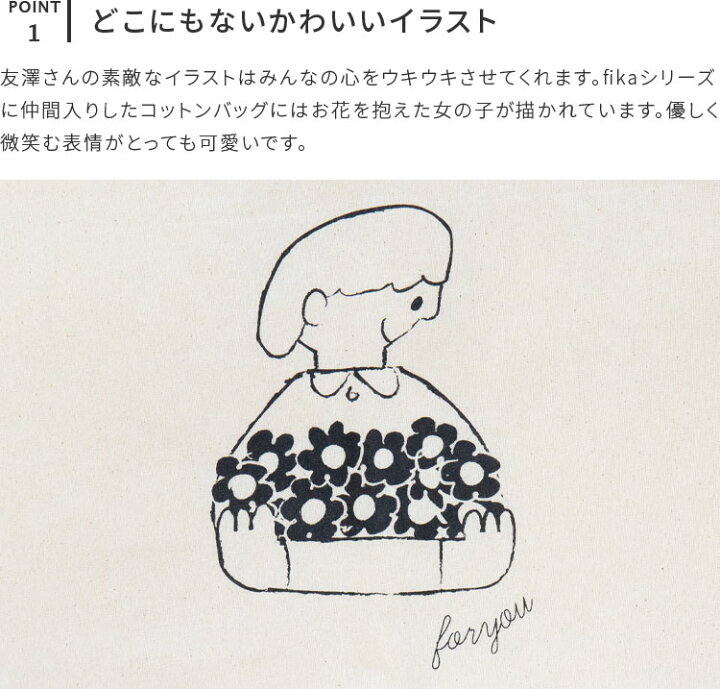 POINT
1
どこにもないかわいいイラスト
友澤さんの素敵なイラストはみんなの心をウキウキさせてくれます。fikaシリーズ
に仲間入りしたコットンバッグにはお花を抱えた女の子が描かれています。優しく
微笑む表情がとっても可愛いです。
for you